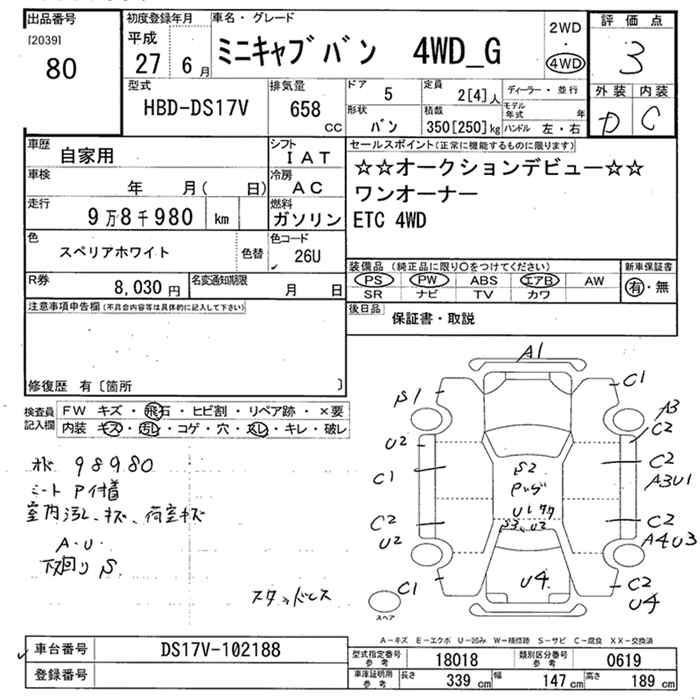 出品番号
[2039]
80
初度登録年月
平成
27 6月
車名・グレード
ミニキャブバン 4WD_G
2WD
・
4WD
評価点
3
外装 内装
D C
型式
HBD-DS17V
排気量
658 CC
ドア 5
形状 バン
定員 2[4]人
積載 350[250]kg
ディーラー・並行
モデル年式 年
ハンドル 左・右
車歴 自家用
シフト IAT
車検 年 月( 日)
冷房 AC
走行 9万8千980 km
燃料 ガソリン
色 スペリアホワイト 色替
色コード 26U
R券 8,030円
名変通知期限 月 日
セールスポイント(正常に機能するものに限ります)
☆☆オークションデビュー☆☆
ワンオーナー
ETC 4WD
装備品 (純正品に限り○をつけてください)
PS PW ABS エアB AW
SR ナビ TV カワ
新車保証書
有・無
後日品 保証書・取説
注意事項申告欄(不具合内容等は具体的に記入して下さい)
修復歴 有〔箇所 〕
検査員記入欄
FW キズ・飛石・ヒビ割・リペア跡・×要
内装 キズ・汚れ・コゲ・穴・スレ・キレ・破レ
98980
シート P付着
室内汚れ、キズ、荷室キズ
A・U・
下回りS
スタッドレス
A1
S1
C1
A3
C2
U2
C1
C2
A3U1
S2
U1
S3、U2
C2
U2
C2
A4U3
C1
U4
C2
U4
スペア
A－キズ E－エクボ U－凹み W－補修跡 S－サビ C－腐食 XX－交換済
車台番号 DS17V-102188
登録番号
型式指定番号 参考 18018
類別区分番号 参考 0619
車庫証明用 参考 長さ 339cm 幅 147cm 高さ 189cm